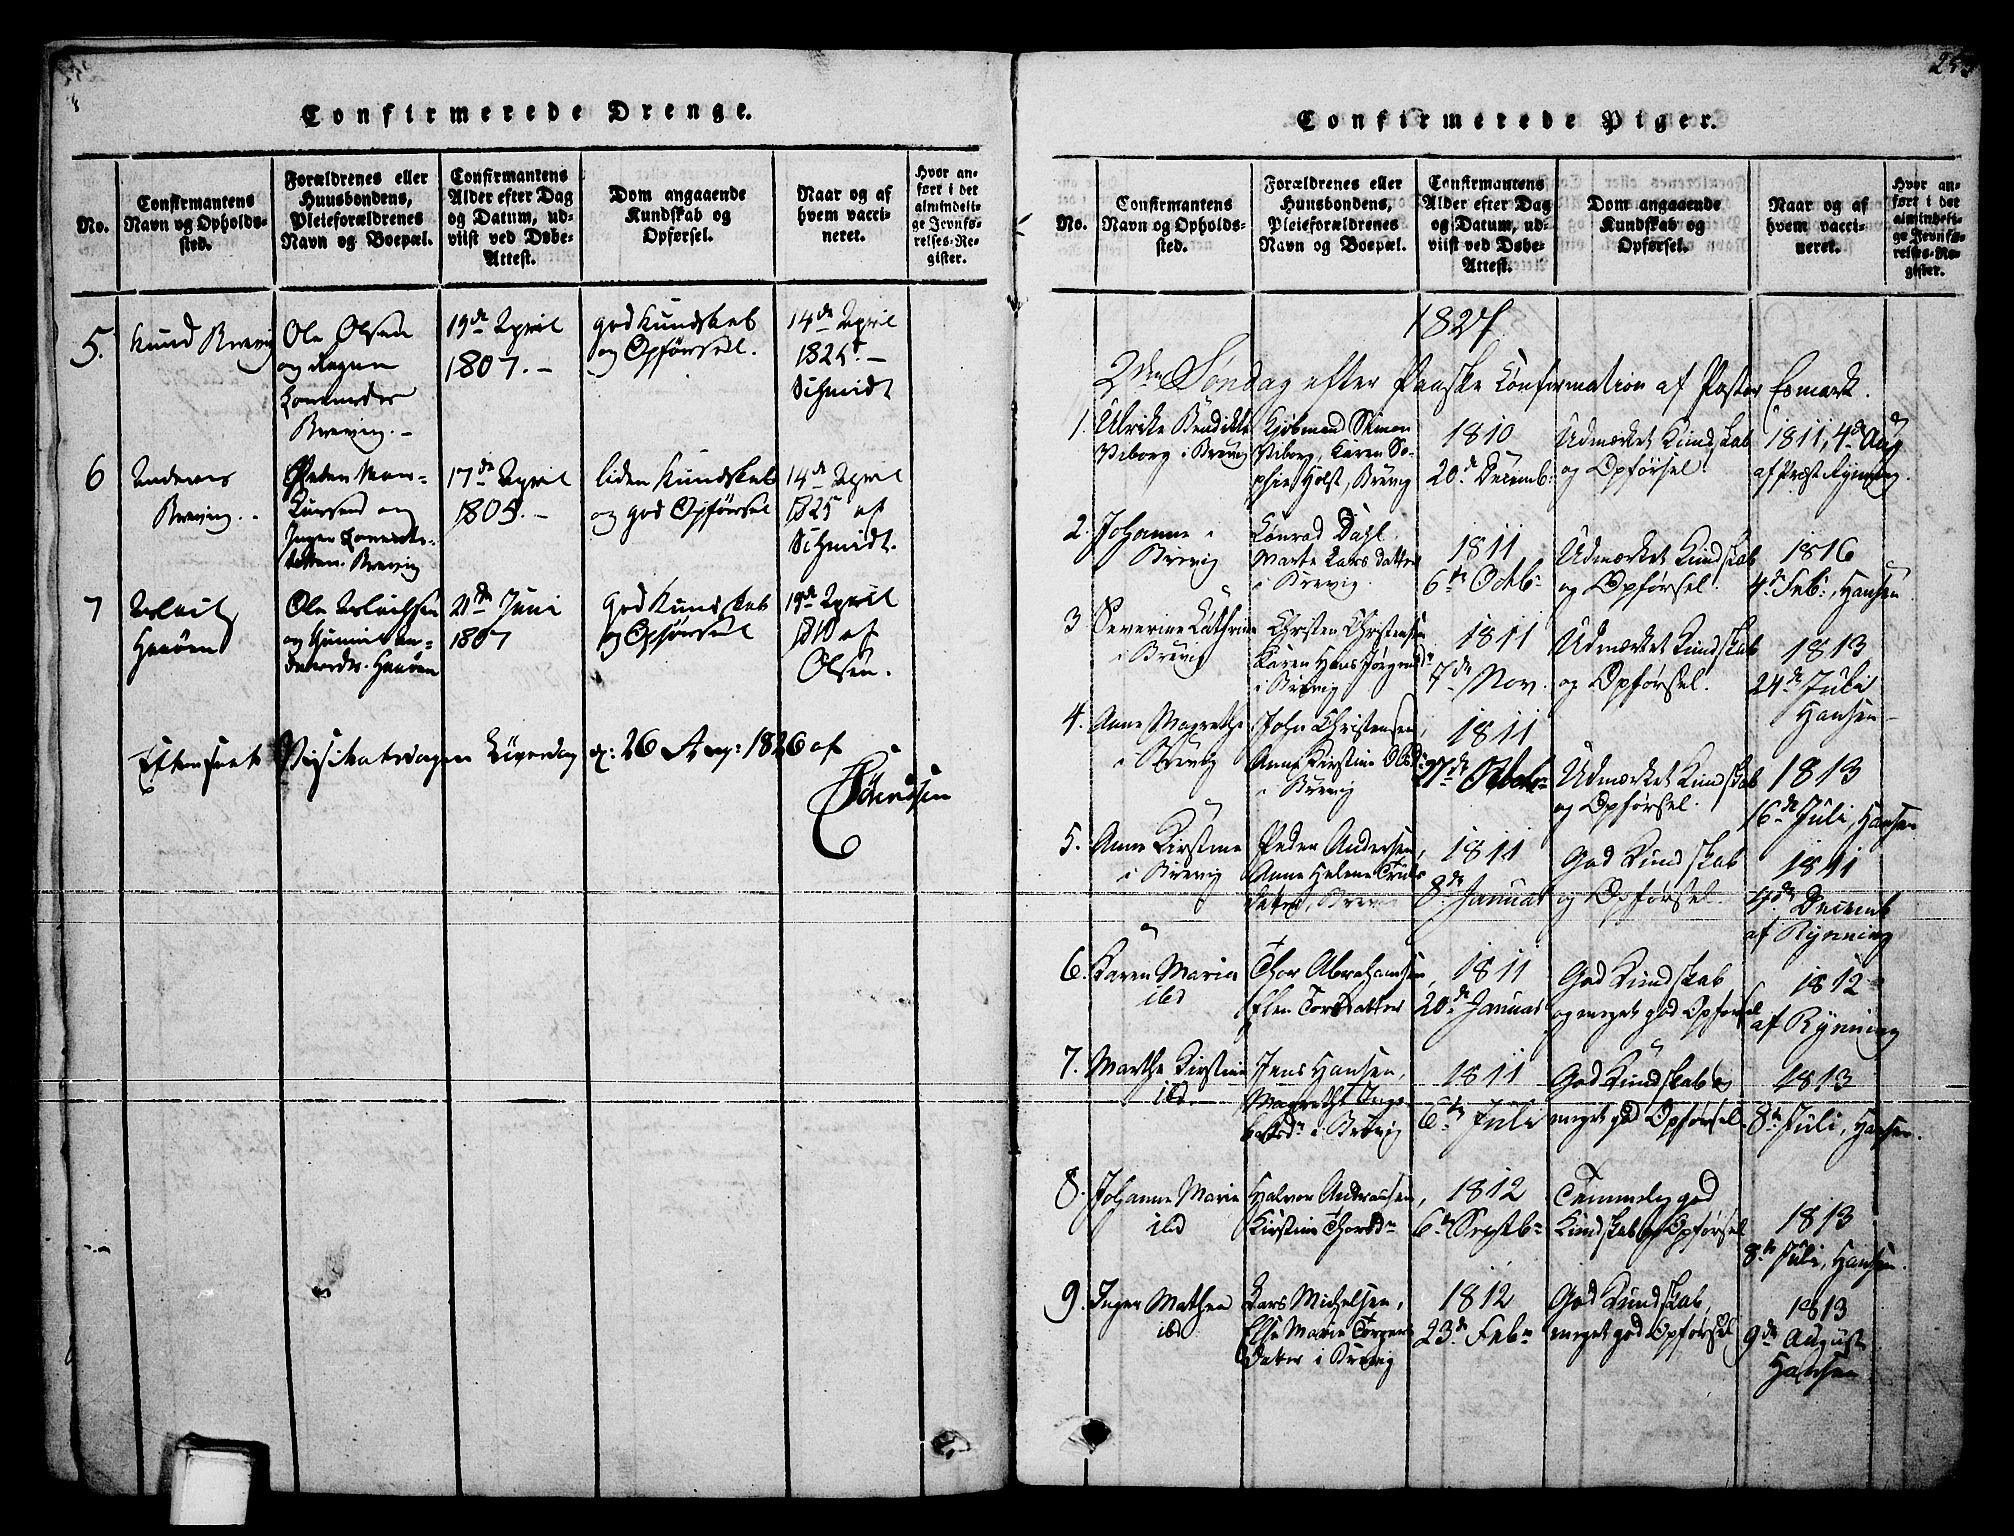 Confirmerede Drenge.
No.
Confirmantens
Navn og Opholds-
sted.
Forældrenes eller
Huusbondens,
Pleieforældrenes
Navn og Boepæl.
Confirmantens
Alder efter Dag
og Datum, ud-
viist ved Døbe-
Attest.
Dom angaaende
Kundskab og
Opførsel.
Naar og af
hvem vacci-
neret.
Hvor an-
ført i det
almindeli-
ge Jevnfø-
relses-Re-
gister.
5.
Knud Brevig
Ole Olsen
og
Brevig. –
19de April
1807. –
god Kundskab
og Opførsel.
14de April
1825. –
Schmidt
6
Anders
Brevig. –
Peder
og
Inger
Brevig
17de April
1805. –
liden Kundskab
og god Opførsel
14de April
1825 af
Schmidt.
7
Ole
og
21de Juni
1807
god Kundskab
og Opførsel
19de April
af
Olsen.
Efterseet Visitatsdagen Løverdag d: 26 Aug: 1826 af
Confirmerede Piger.
No.
Confirmantens
Navn og Opholds-
sted.
Forældrenes eller
Huusbondens,
Pleieforældrenes
Navn og Boepæl.
Confirmantens
Alder efter Dag
og Datum, ud-
viist ved Døbe-
Attest.
Dom angaaende
Kundskab og
Opførsel.
Naar og af
hvem vacci-
neret.
Hvor an-
ført i det
almindeli-
ge Jevnfø-
relses-Re-
gister.
1827
2den Søndag efter Paaske Confirmation af Pastor Esmark.
1.
Ulrike Bendikte
Viborg i Brevig
Kjøbmand Simon
Viborg, Karen So-
phie Holst, Brevig
1810
20de Decemb:
Udmærket Kundskab
og Opførsel
1811, 4de Aug
af Præst Rynning.
2.
Johanne i
Brevig
Conrad Dahl
Marte Larsdatter
i Brevig.
1811
6te Octb:
Udmærket Kundskab
og Opførsel.
1816
4de Feb:, Hansen.
3
Severine Cathrine
i Brevig
Christen Christensen
Karen Hans Jørgensd:
i Brevig
1811
7de Nov.
Udmærket Kundskab
og Opførsel.
1813
24de Juli
Hansen
4.
Anne Magrethe
i Brevig
John Christensen,
Anne Kirstine Olsd:
i Brevig
1811
27de Octob:
Udmærket Kundskab
og Opførsel.
1813
16de Juli, Hansen
5.
Anne Kirstine
i Brevig
Peder Andersen,
Anne Helene Truls
datter, Brevig
1811
8de Januar
God Kundskab
og Opførsel.
1811
4de Decemb
af Rynning
6.
Karen Maria
ibd
Thor Abrahamsen,
Elen Torsdatter
1811
20de Januar
God Kundskab
og meget god Opførsel
1812
af Rynning
7.
Marthe Kirstine
ibd.
Jens Hansen,
Magrethe
i Brevig
1811
6te Juli
God Kundskab og
meget god Opførsel
1813
8de Juli, Hansen.
8.
Johanne Marie
ibd
Halvor Andreasen,
Kirstine Thorsd:
1812
6te Septb:
Temmelig god
Kundskab og Opførsel
1813
8de Juli, Hansen.
9.
Inger Mathea
ibd
Lars Michelsen,
Else Marie Torgers
datter i Brevig
1812
23de Feb:
God Kundskab,
meget god Opførsel
1813
9de August
Hansen